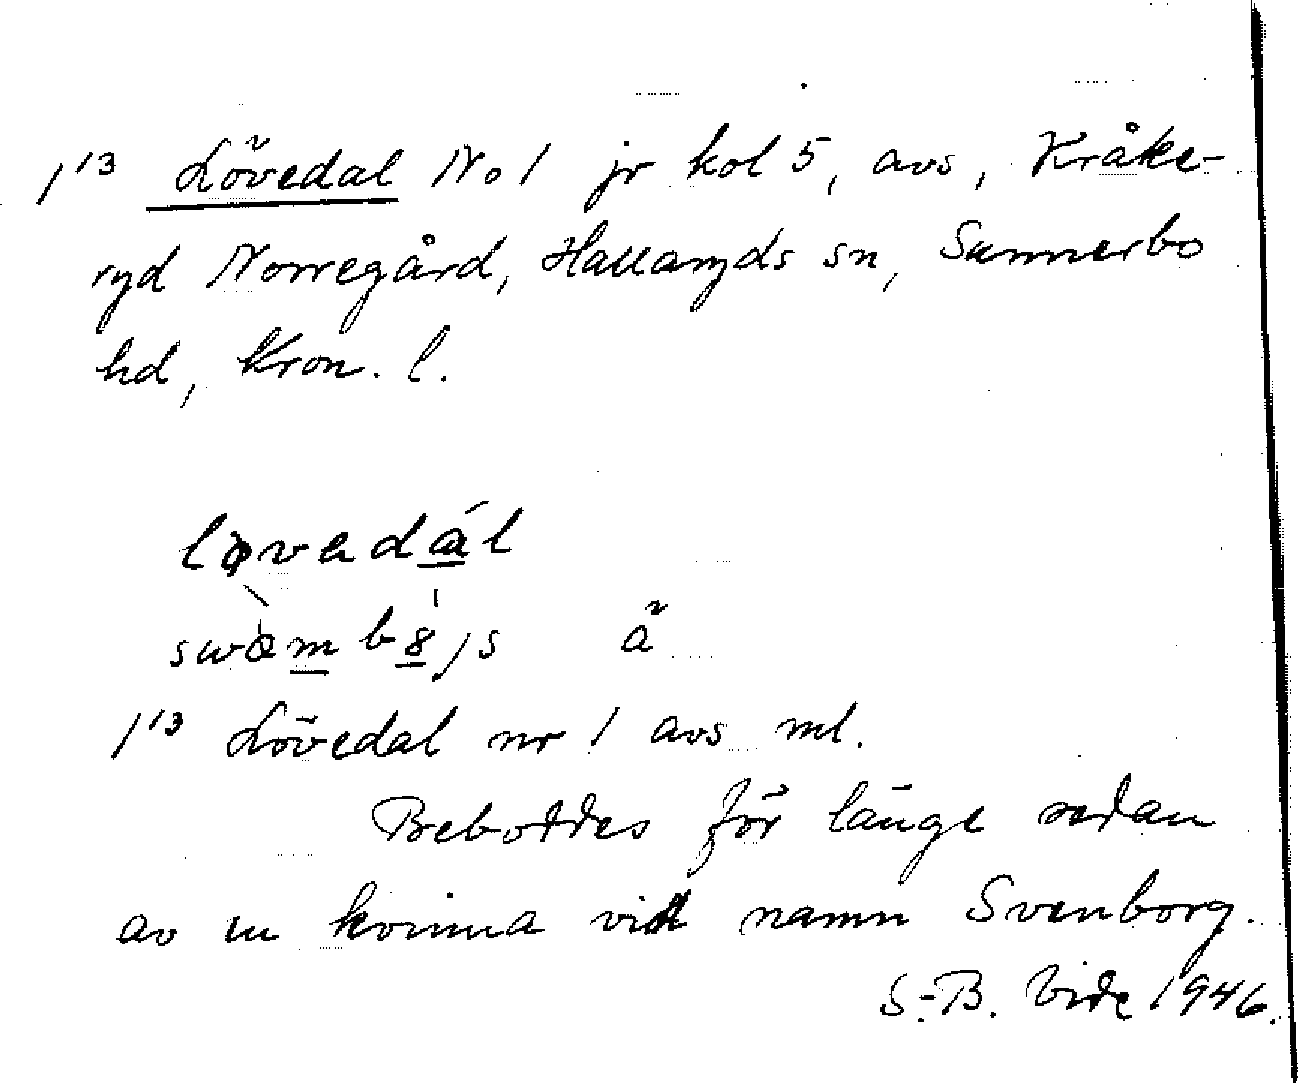 1¹³ Lövedal No 1 jr kol 5, avs, Kråke-
ryd Norregård, Hallaryds sn, Sunnerbo
hd, Kron. l.
å
1¹³ Lövedal nr 1 avs ml.
Beboddes för länge sedan
av en kvinna vid namn Svenborg.
S.-B. Vide 1946.